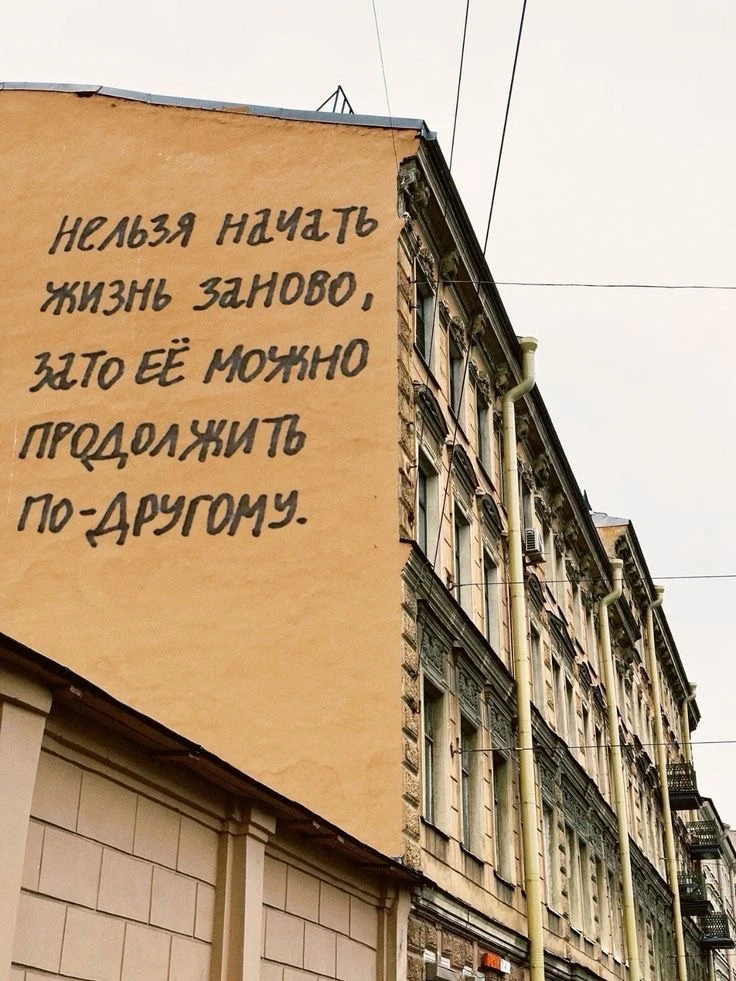 нельзя начать
жизнь заново,
зато её можно
продолжить
по-другому.